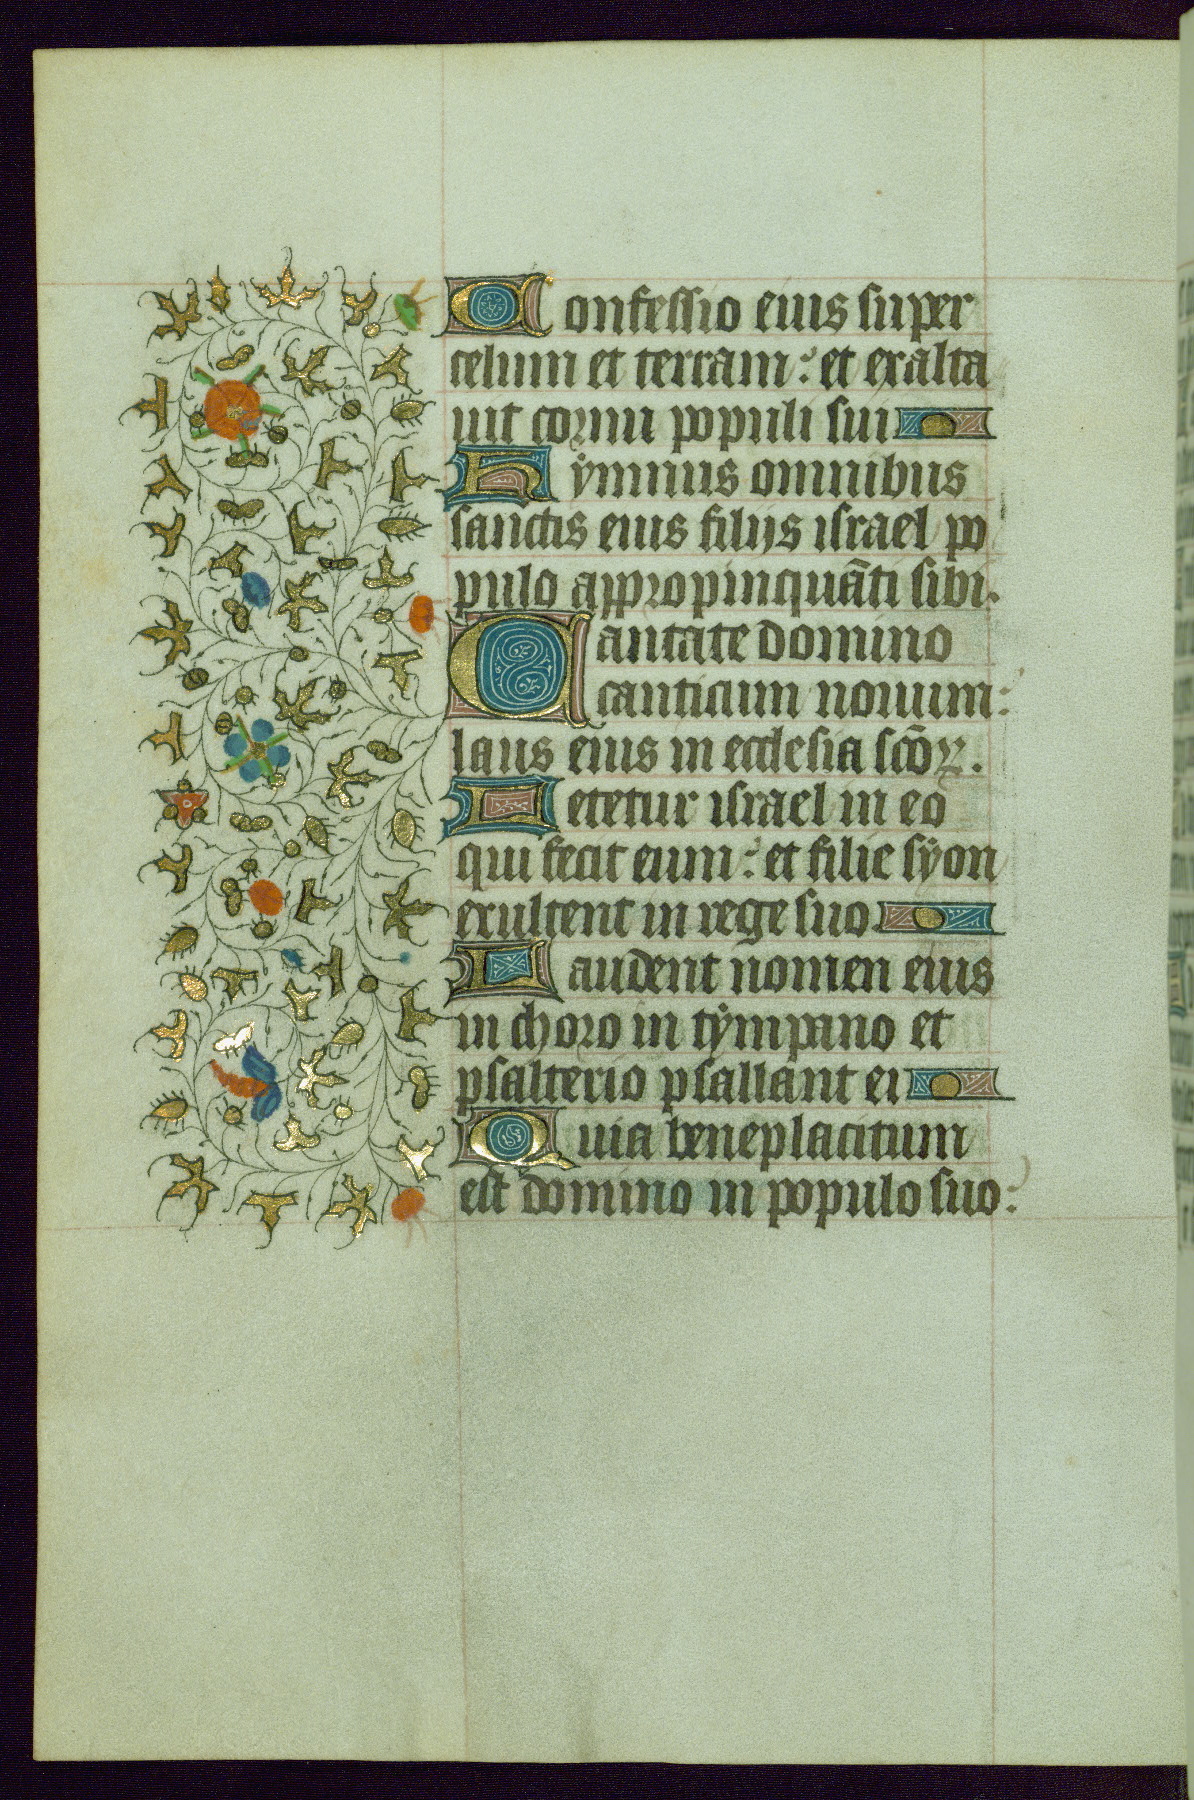 Confessio eius super
celum et terram: et exalta
uit cornu populi sui
Hymnus omnibus
sanctis eius filijs israel po
pulo appropinquãti sibi.
Cantate domino
canticum nouum:
laus eius in ecclesia scõꝝ.
Letetur israel in eo
qui fecit eum: et filie syon
exultent in rege suo
Laudent nomen eius
in choro in tympano et
psalterio psallant ei
Quia beneplacitum
est domino in populo suo: